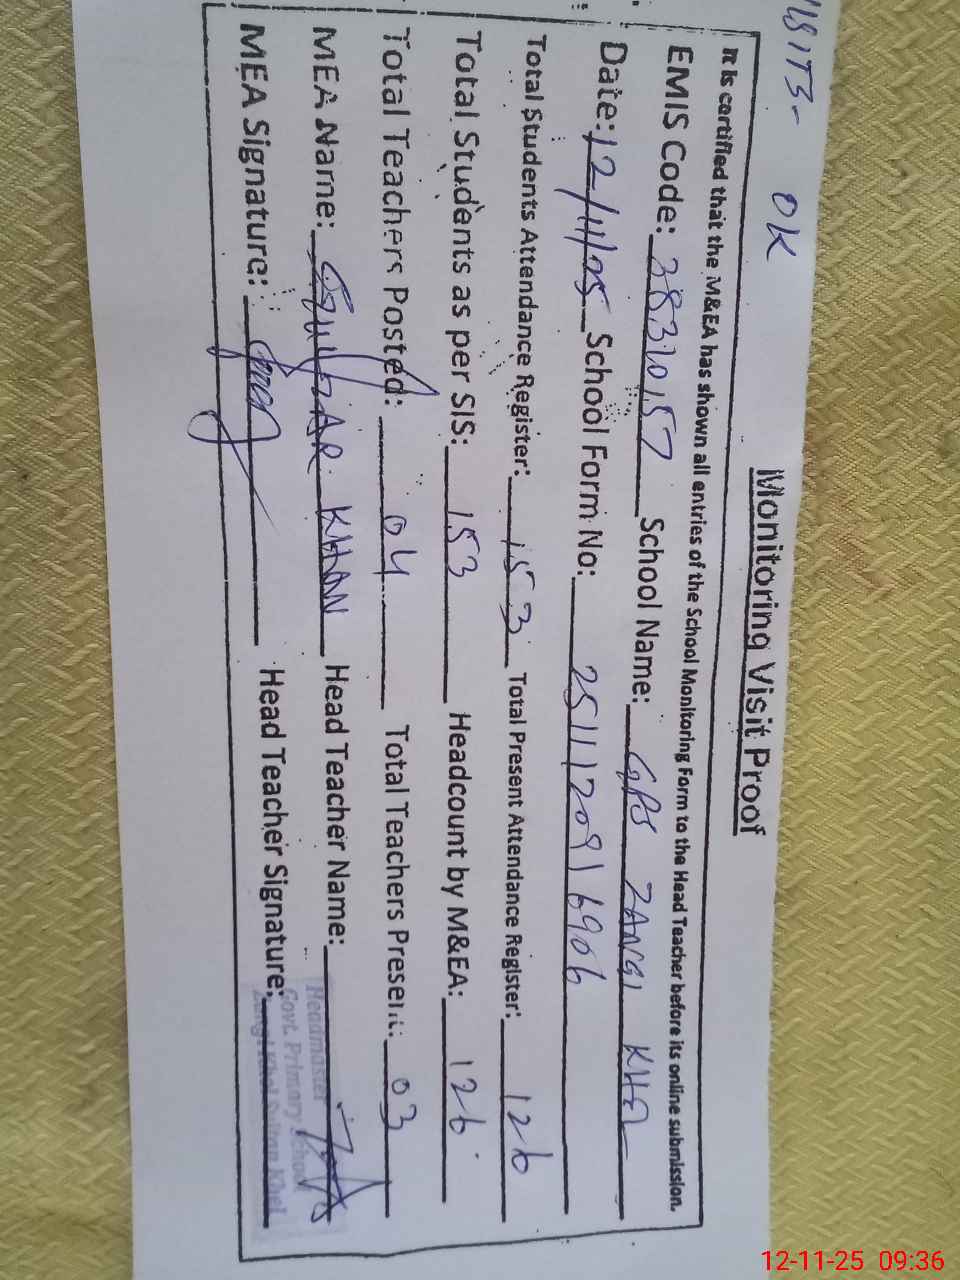 OK
Monitoring Visit Proof
It is certified that the M&EA has shown all entries of the School Monitoring Form to the Head Teacher before its online submission.
EMIS Code: 38320157 School Name: GPS ZANGI KHEL
Date: 12/11/25 School Form No: 2511120916906
Total Students Attendance Register: 153 Total Present Attendance Register: 126
Total Students as per SIS: 153 Headcount by M&EA: 126
Total Teachers Posted: 04 Total Teachers Present: 03
MEA Name: GULZAR KHAN Head Teacher Name:
MEA Signature: Head Teacher Signature:
Headmaster
Govt. Primary School
Zangi Khel
12-11-25 09:36